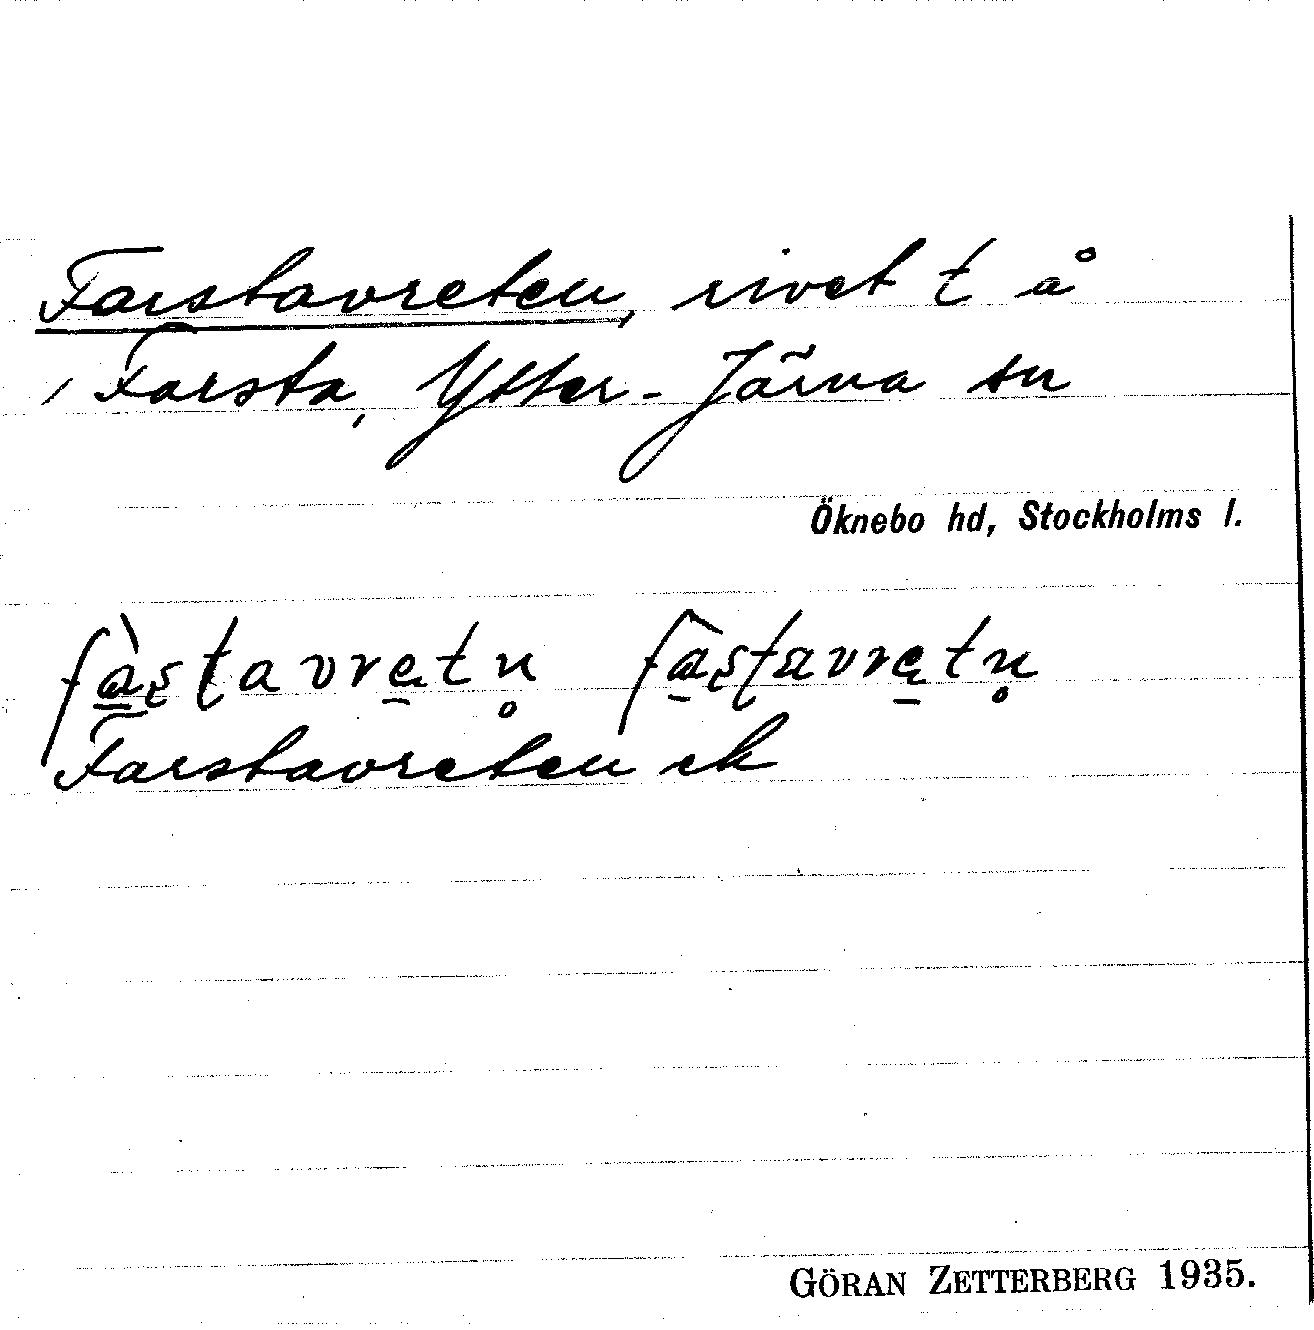 Farstavreten, rivet t å
i Farsta, Ytter-Järna sn
Öknebo hd, Stockholms l.
fàʂʈavretn̥ fâʂʈavretn̥
Farstavreten ek
GÖRAN ZETTERBERG 1935.